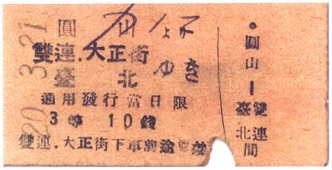 圓 山より
雙連.大正街
臺 北 ゆき
通用發行當日限
3等 10錢
雙連.大正街下車前途無効
圓山ー雙連
臺北間